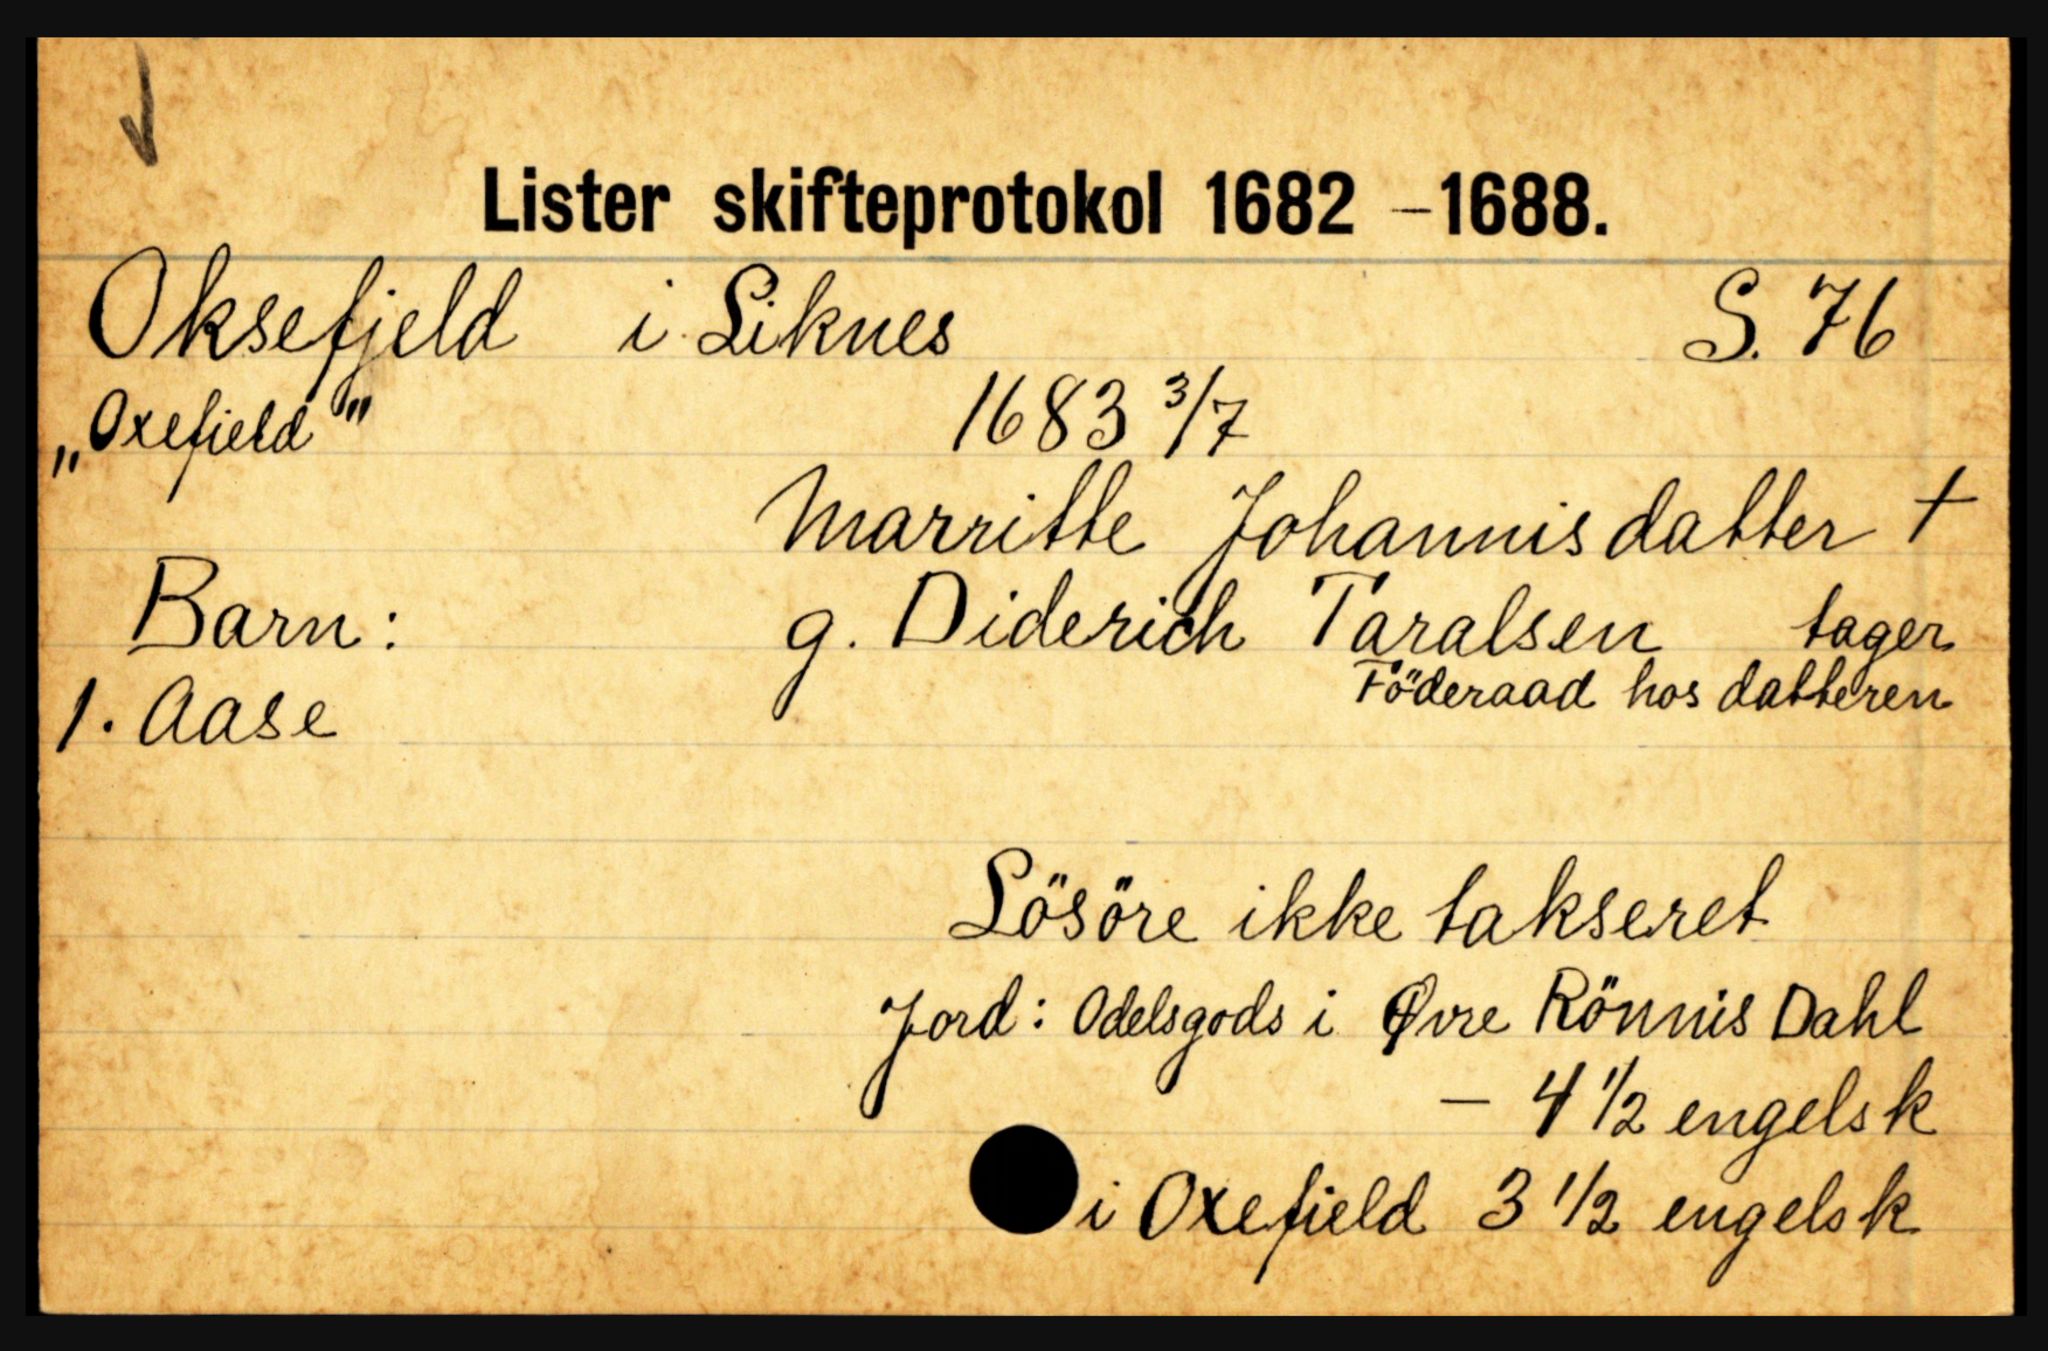 Lister skifteprotokol 1682 –1688.
Oksefjeld i Liknes S. 76
„Oxefield" 1683 3/7
Marritte Johannisdatter †
Barn: g. Diderich Taralsen tager
Föderaad hos datteren
1. Aase
Lösöre ikke takseret
Jord: Odelsgods i Øvre Rönnis Dahl
– 4 1/2 engelsk
i Oxefield 3 1/2 engelsk